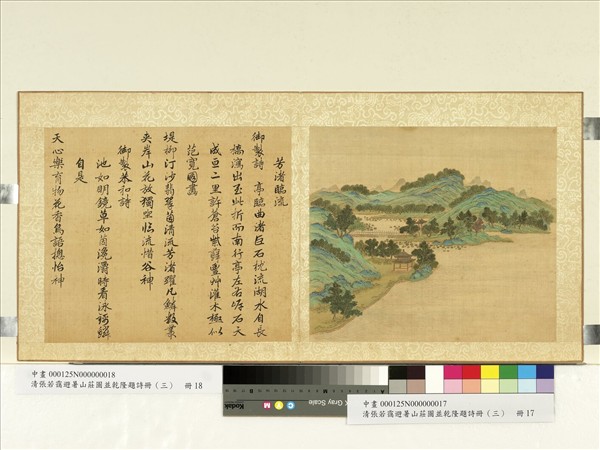 芳渚臨流
御製詩 亭臨曲渚巨石枕流湖水自長
橋瀉出至此折而南行亭左右岸石天
成亘二里許蒼苔紫蘚豐草灌木極似
范寬圖畫
堤柳汀沙翡翠茵清流芳渚躍凡鱗數叢
夾岸山花放獨坐臨流惜谷神
御製恭和詩
池如明鏡草如茵瀺灂時看泳錦鱗
自是
天心樂育物花香鳥語總怡神
中畫 000125N000000018
清張若靄避暑山莊圖並乾隆題詩冊（三） 冊 18
Kodak
Gray Scale
中畫 000125N000000017
清張若靄避暑山莊圖並乾隆題詩冊（三） 冊 17